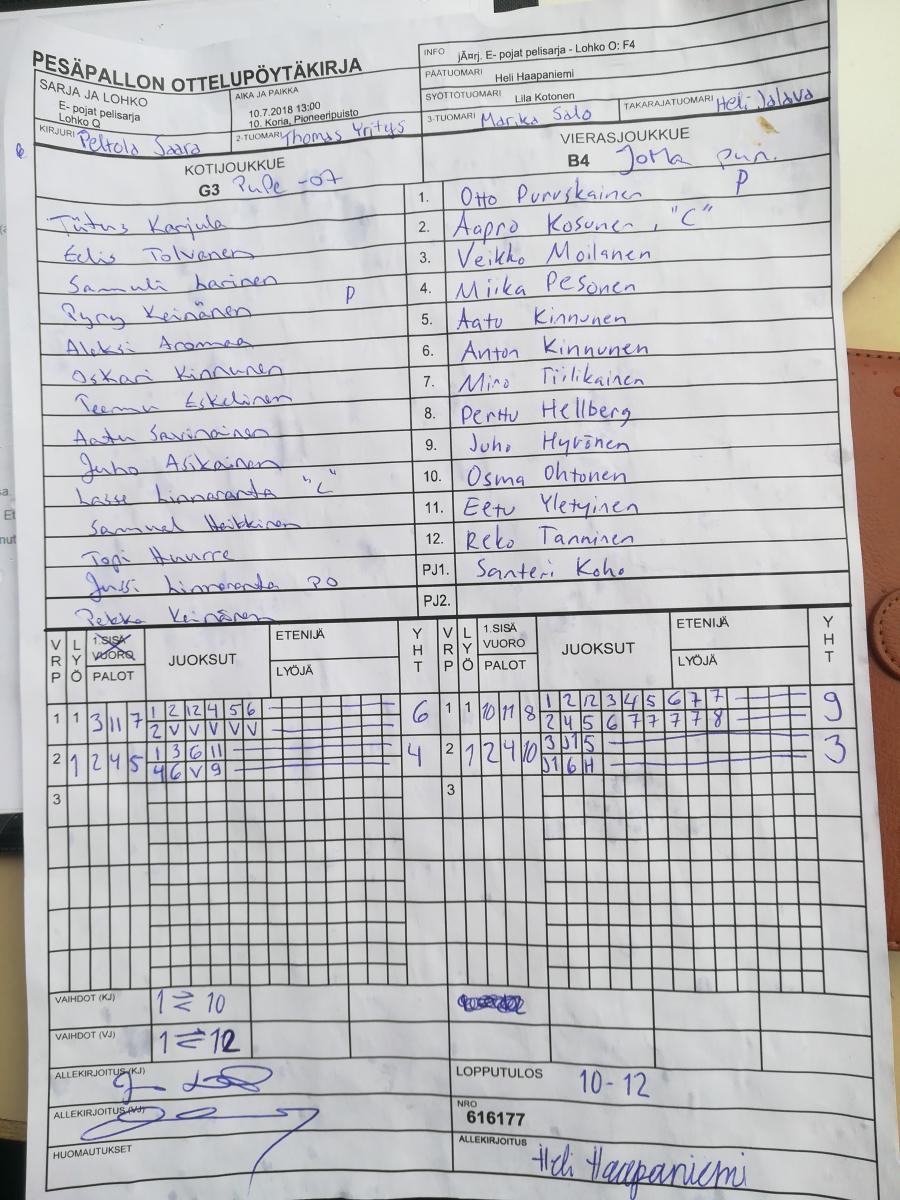 PESÄPALLON OTTELUPÖYTÄKIRJA
SARJA JA LOHKO
E- pojat pelisarja
Lohko O
AIKA JA PAIKKA
10.7.2018 13:00
10. Koria, Pioneeripuisto
INFO jÄ¤rj. E- pojat pelisarja - Lohko O: F4
PÄÄTUOMARI Heli Haapaniemi
SYÖTTÖTUOMARI Lila Kotonen
KIRJURI Peltola Saara
2-TUOMARI Thomas Yritys
3-TUOMARI Marika Salo
TAKARAJATUOMARI Heli Jalava
KOTIJOUKKUE
G3 PuPe -07
VIERASJOUKKUE
B4 JoMa pun.
1. Otto Puruskainen P
Tiitus Karjula 2. Aapro Kosunen, "C"
Eelis Tolvanen 3. Veikko Moilanen
Samuli Larinen 4. Miika Pesonen
Pyry Keinänen P 5. Aatu Kinnunen
Aleksi Aromaa 6. Anton Kinnunen
Oskari Kinnunen 7. Miro Tiilikainen
Teemu Eskelinen 8. Perttu Hellberg
Aatu Savinainen 9. Juho Hyvönen
Juho Asikainen 10. Osma Ohtonen
Lasse Linnaranta "C" 11. Eetu Yletyinen
Samuel Heikkinen 12. Reko Tanninen
Topi Huurre PJ1. Santeri Koho
Jussi Linnaranta PO PJ2.
Pekka Keinänen
VRP LYÖ 1.SISÄ VUORO PALOT JUOKSUT ETENIJÄ LYÖJÄ YHT VRP LYÖ 1.SISÄ VUORO PALOT JUOKSUT ETENIJÄ LYÖJÄ YHT
1 1 3 11 7 1 2 12 4 5 6 6 1 1 10 11 8 1 2 12 3 4 5 6 7 7 9
2 V V V V V 2 4 5 6 7 7 7 7 8
2 1 2 4 5 1 3 6 11 4 2 1 2 4 10 3 J1 5 3
4 6 V 9 J1 6 H
3 3
VAIHDOT (KJ) 1 ⇄ 10
VAIHDOT (VJ) 1 ⇄ 12
ALLEKIRJOITUS (KJ)
LOPPUTULOS 10-12
ALLEKIRJOITUS (VJ)
NRO
616177
HUOMAUTUKSET
ALLEKIRJOITUS Heli Haapaniemi